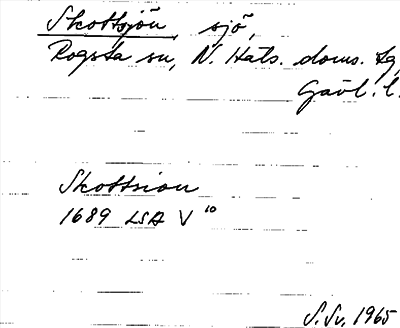 Skottsjön, sjö,
Rogsta sn, N. Häls. doms. tg,
Gävl. l.
Skottsion
1689 LSA V 10
S. Sv. 1965